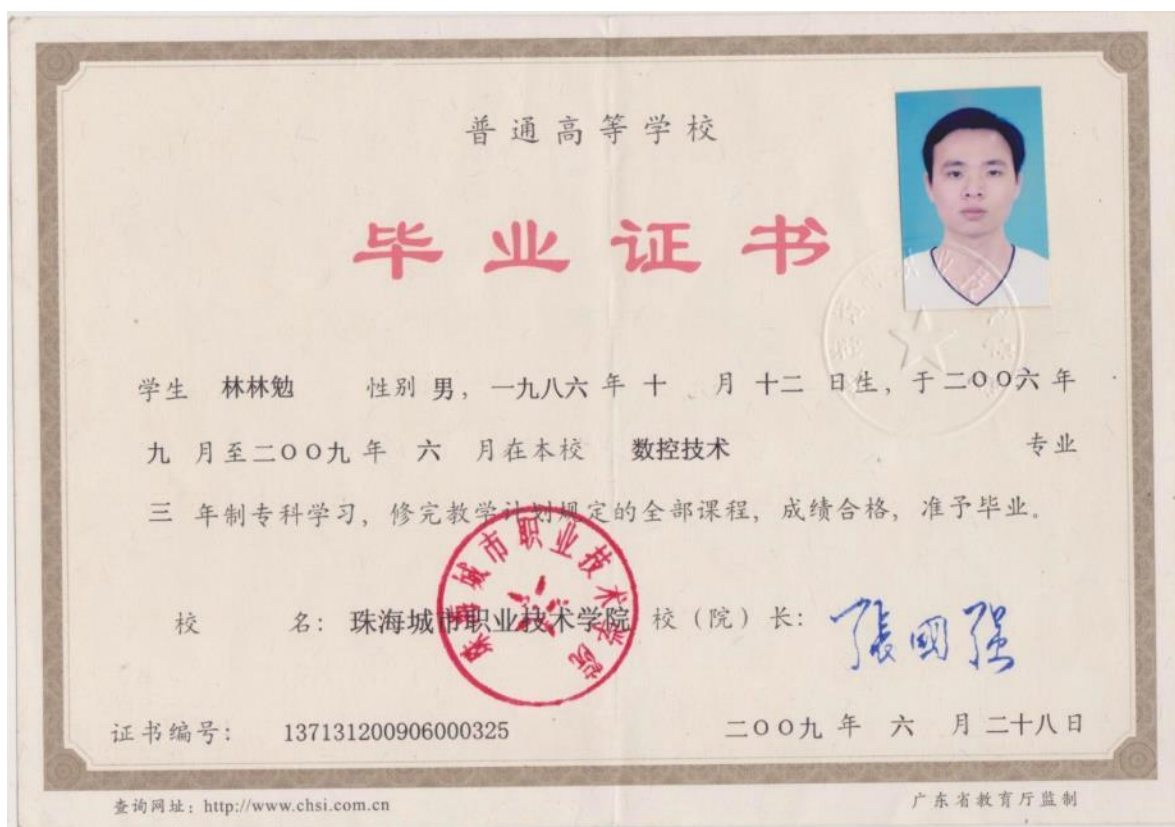 普通高等学校
毕业证书
学生 林林勉 性别 男，一九八六 年 十 月 十二 日生，于二00六年
九 月至二00九年 六 月在本校 数控技术 专业
三 年制专科学习，修完教学计划规定的全部课程，成绩合格，准予毕业。
校 名：珠海城市职业技术学院 校（院）长：張國强
珠海城市职业技术学院
证书编号： 137131200906000325 二00九 年 六 月 二十八日
查询网址：http://www.chsi.com.cn 广东省教育厅监制